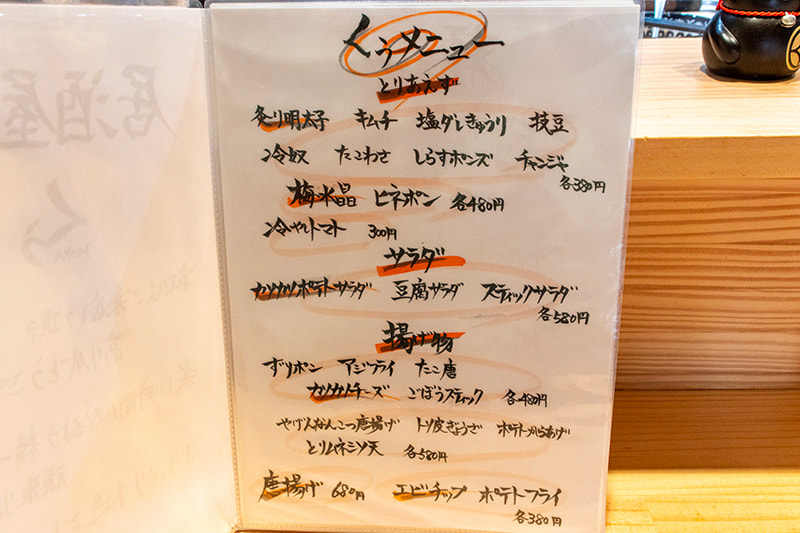 くぅメニュー
とりあえず
炙り明太子 キムチ 塩ダレきゅうり 枝豆
冷奴 たこわさ しらすポンズ チャンジャ
各380円
梅水晶 ピネポン 各480円
冷やしトマト 300円
サラダ
カリカリポテトサラダ 豆腐サラダ スティックサラダ
各580円
揚げ物
ずりポン アジフライ たこ唐
カリカリチーズ ごぼうスティック 各480円
やげんなんこつ唐揚げ トリ皮ぎょうざ ポテトからあげ
とりムネミソ天 各580円
唐揚げ 680円 エビチップ ポテトフライ
各380円
居酒屋
くぅ